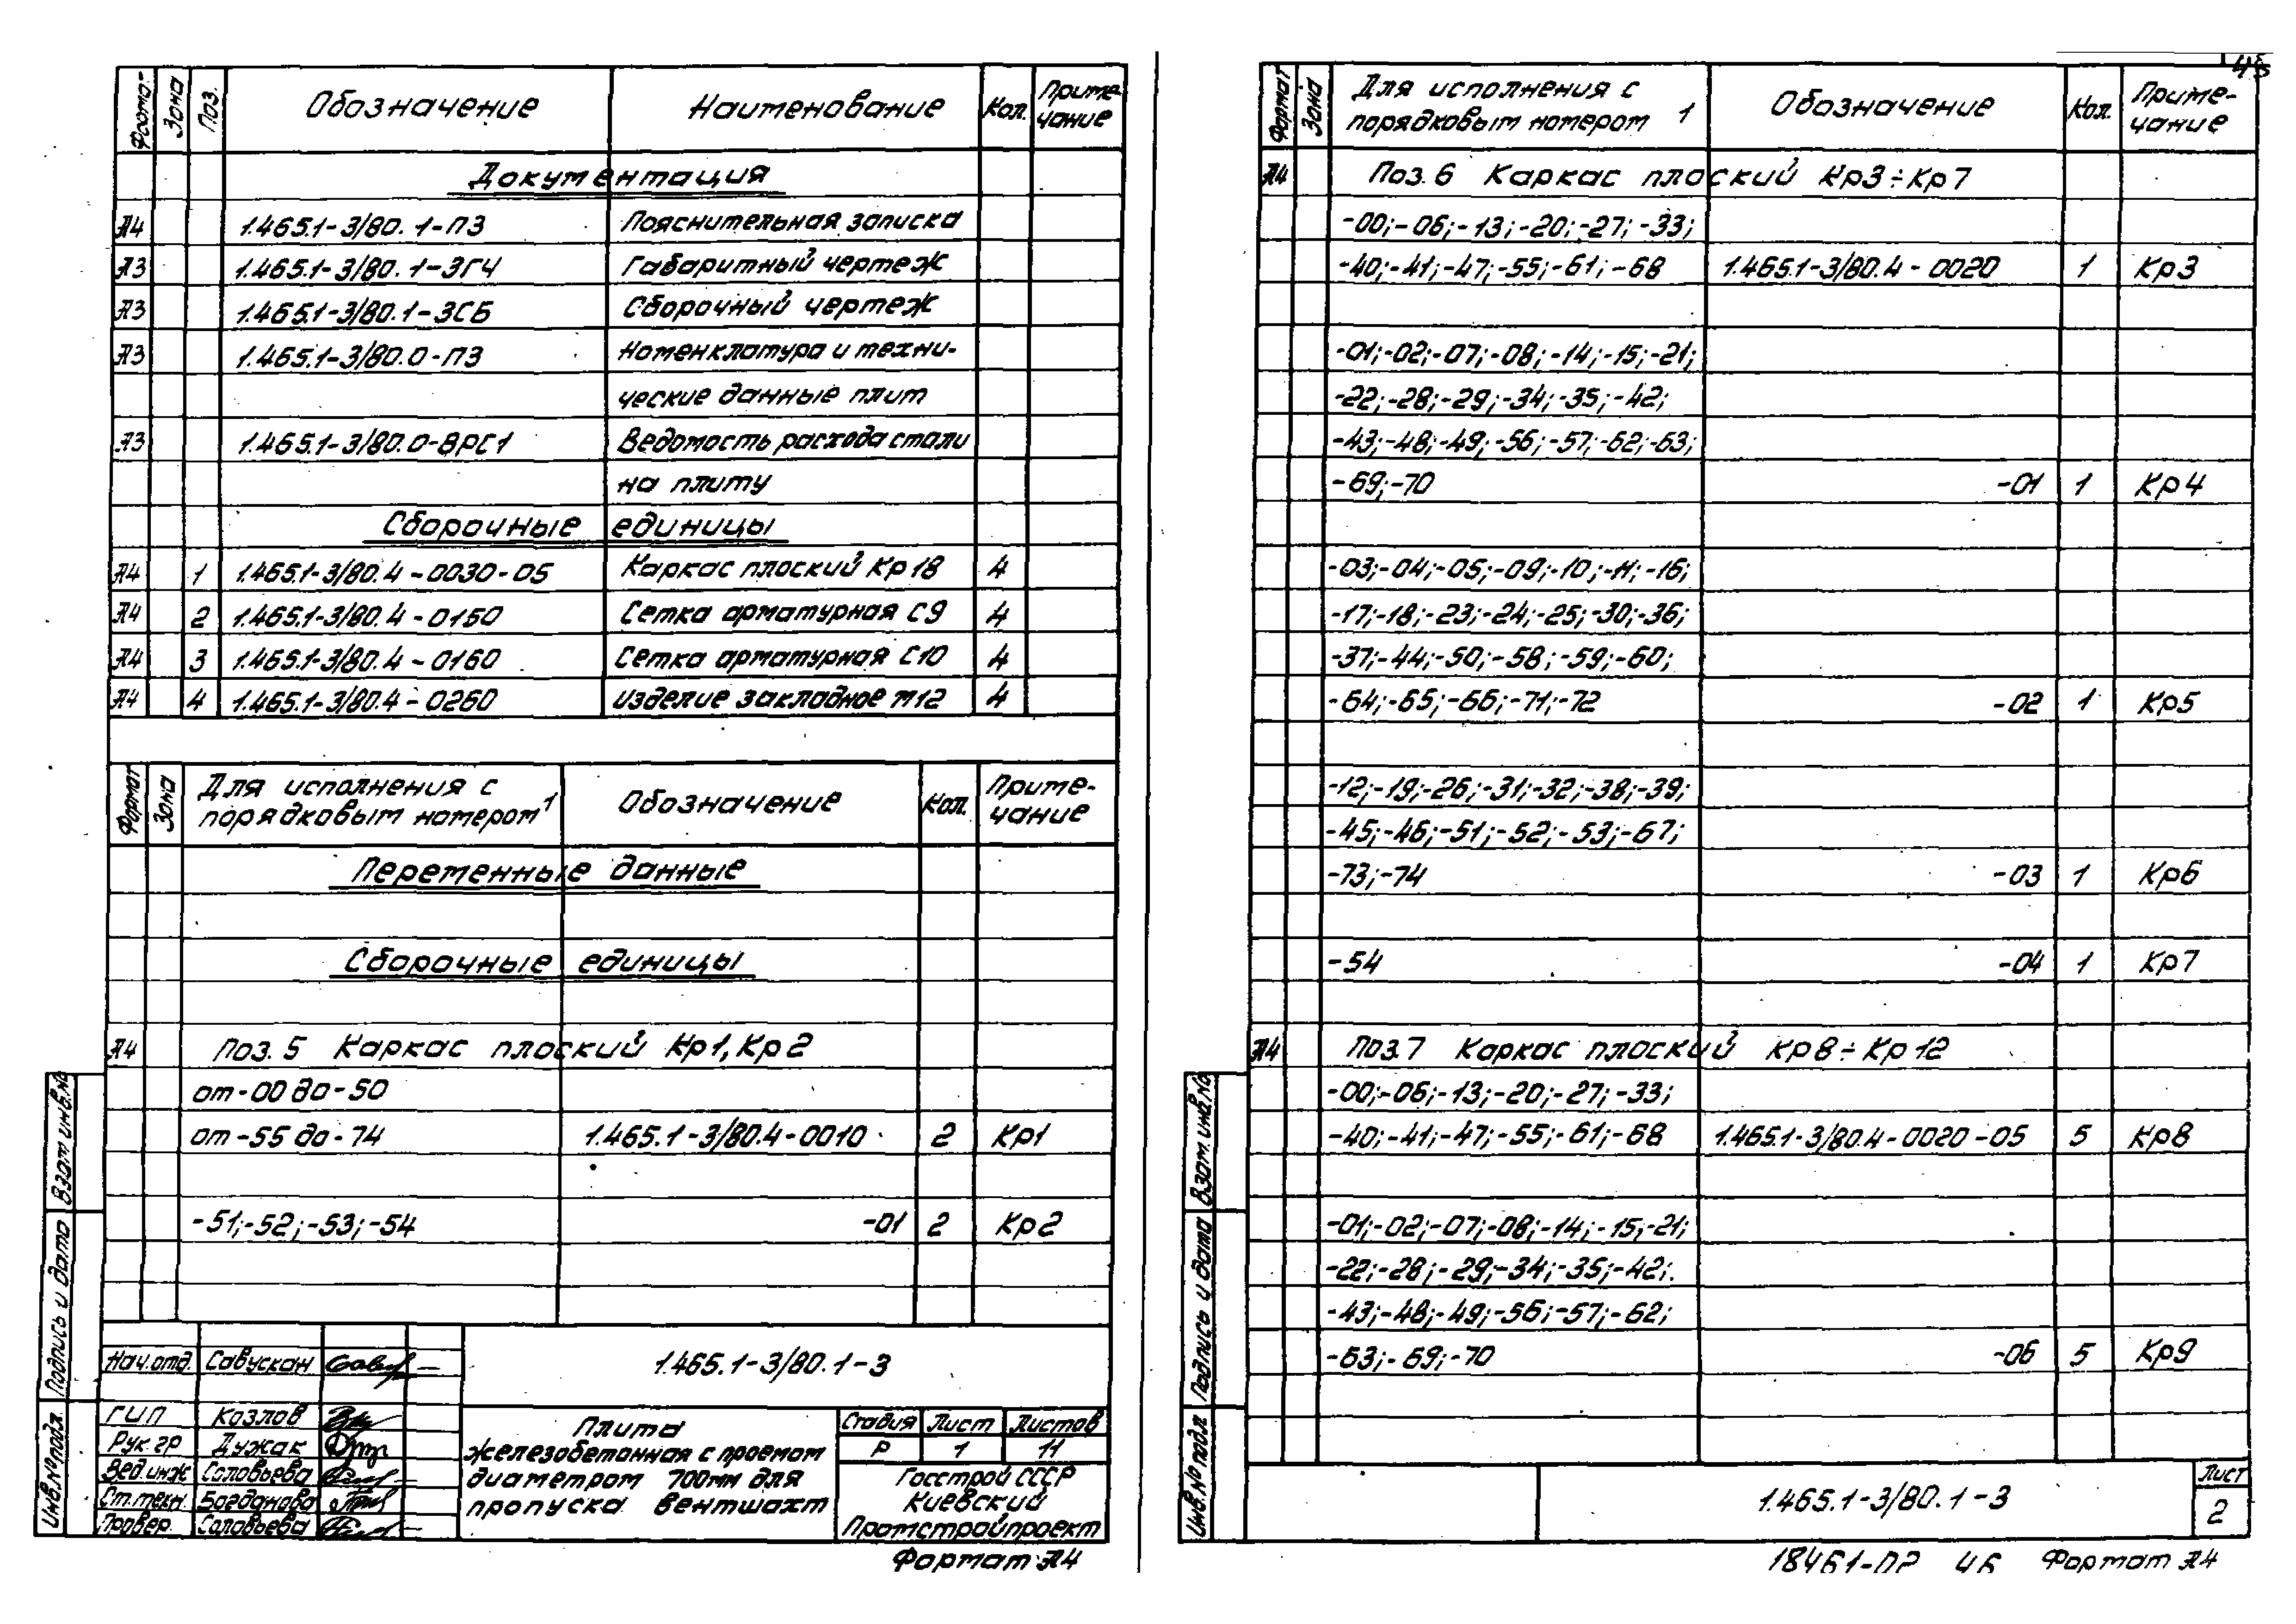 Формат Зона Поз. Обозначение Наименование Кол. Примечание
Документация
А4 1.465.1-3/80. 1-ПЗ Пояснительная записка
А3 1.465.1-3/80. 1-3ГЧ Габаритный чертеж
А3 1.465.1-3/80. 1-3СБ Сборочный чертеж
А3 1.465.1-3/80. 0-ПЗ Номенклатура и техни-
ческие данные плит
А3 1.465.1-3/80. 0-ВРС1 Ведомость расхода стали
на плиту
Сборочные единицы
А4 1 1.465.1-3/80. 4-0030-05 Каркас плоский Кр18 4
А4 2 1.465.1-3/80. 4-0150 Сетка арматурная С9 4
А4 3 1.465.1-3/80. 4-0160 Сетка арматурная С10 4
А4 4 1.465.1-3/80. 4-0260 Изделие закладное М12 4
Формат Зона Для исполнения с Обозначение Кол. Приме-
порядковым номером 1 чание
Переменные данные
Сборочные единицы
А4 Поз. 5 Каркас плоский Кр1, Кр2
от -00 до -50
от -55 до -74 1.465.1-3/80.4-0010 2 Кр1
-51; -52; -53; -54 -01 2 Кр2
Взам инв.№
Подпись и дата
Инв.№ подл.
Нач.отд. Савускан
ГИП Козлов
Рук.гр Дужак
Вед.инж Соловьева
Ст.техн. Богданова
Провер. Соловьева
1.465.1-3/80. 1-3
Плита
железобетонная с проемом
диаметром 700мм для
пропуска вентшахт
Стадия Лист Листов
Р 1 11
Госстрой СССР
Киевский
Промстройпроект
Формат А4
Формат Зона Для исполнения с Обозначение Кол. Приме-
порядковым номером 1 чание
А4 Поз. 6 Каркас плоский Кр3÷Кр7
-00; -06; -13; -20; -27; -33;
-40; -41; -47; -55; -61; -68 1.465.1-3/80.4-0020 1 Кр3
-01; -02; -07; -08; -14; -15; -21;
-22; -28; -29; -34; -35; -42;
-43; -48; -49; -56; -57; -62; -63;
-69; -70 -01 1 Кр4
-03; -04; -05; -09; -10; -11; -16;
-17; -18; -23; -24; -25; -30; -36;
-37; -44; -50; -58; -59; -60;
-64; -65; -66; -71; -72 -02 1 Кр5
-12; -19; -26; -31; -32; -38; -39;
-45; -46; -51; -52; -53; -67;
-73; -74 -03 1 Кр6
-54 -04 1 Кр7
А4 Поз. 7 Каркас плоский Кр8÷Кр12
-00; -06; -13; -20; -27; -33;
-40; -41; -47; -55; -61; -68 1.465.1-3/80.4-0020-05 5 Кр8
-01; -02; -07; -08; -14; -15; -21;
-22; -28; -29; -34; -35; -42;
-43; -48; -49; -56; -57; -62;
-63; -69; -70 -06 5 Кр9
Взам. инв.№
Подпись и дата
Инв.№ подл.
1.465.1-3/80. 1-3
Лист
2
18461-02 46 Формат А4